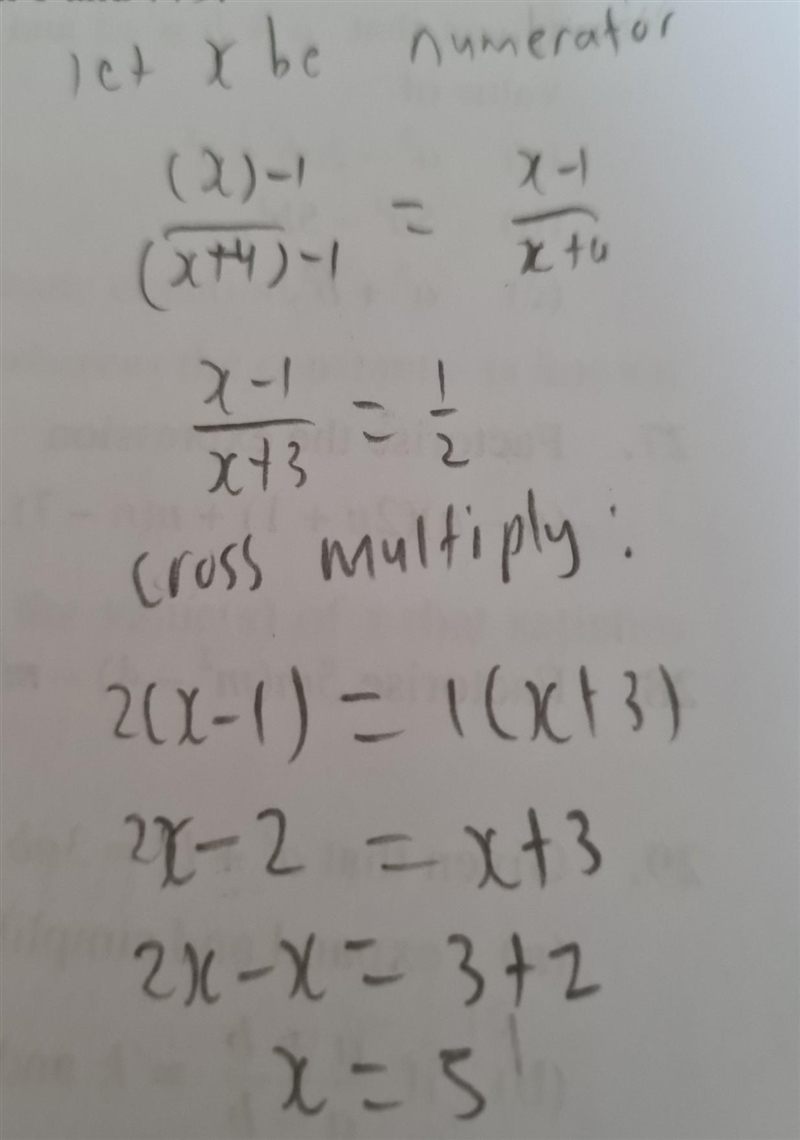 let x be numerator
(x)-1 / (x+4)-1 = x-1 / x+4
x-1 / x+3 = 1/2
cross multiply:
2(x-1) = 1(x+3)
2x-2 = x+3
2x-x = 3+2
x = 5